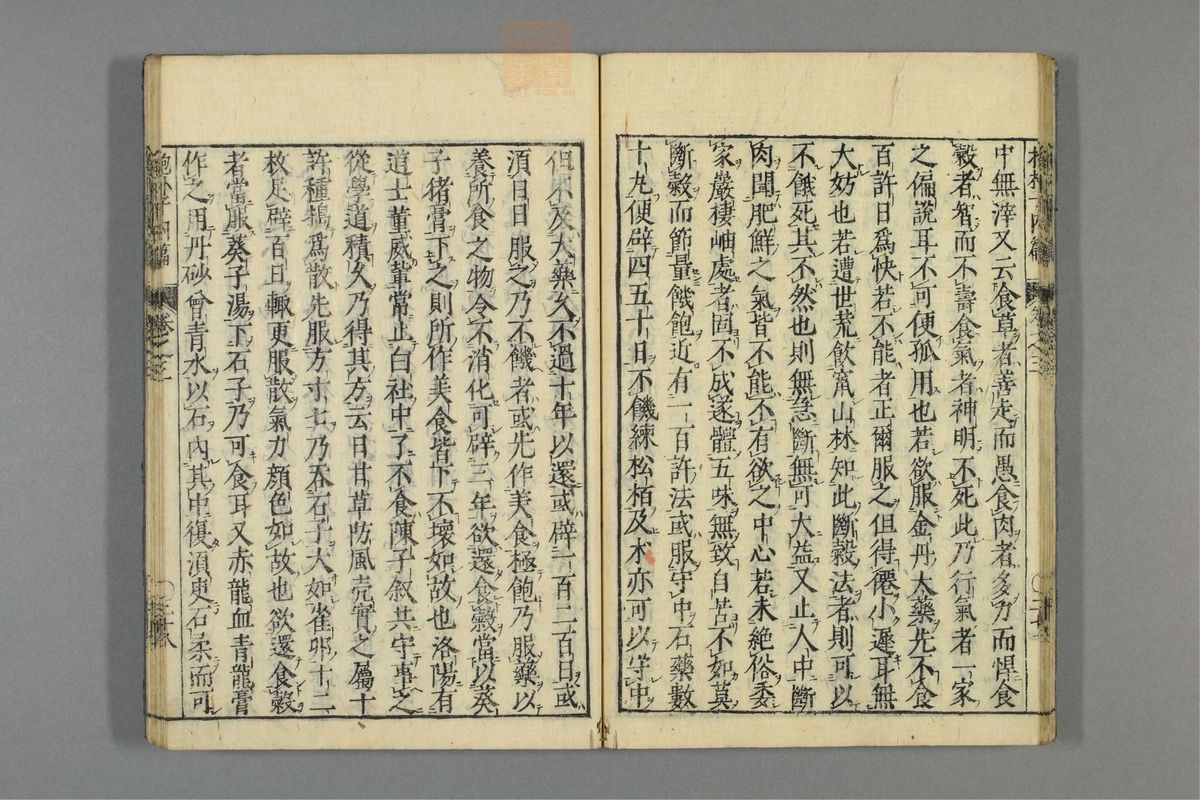 中無滓又云食草者善走而愚食肉者多力而悍食
穀者智而不壽食氣者神明不死此乃行氣者一家
之偏說耳不可便孤用也若欲服金丹大藥先不食
百許日爲快若不能者正爾服之但得僊小遲耳無
大妨也若遭世荒飲竄山林知此斷穀法者則可以
不餓死其不然也則無急斷無可大益又止人中斷
肉聞肥鮮之氣皆不能不有欲之中心若未絶俗委
家嚴棲岫處者固不成遂體五味無致自苦不如莫
斷穀而節量飢飽近有一百許法或服守中石藥數
十丸便辟四五十日不饑練松栢及朮亦可以守中
但不及大藥久不過十年以還或辟一百二百日或
須日日服之乃不饑者或先作美食極飽乃服藥以
養所食之物令不消化可辟三年欲還食穀當以葵
子猪膏下之則所作美食皆下不壞如故也洛陽有
道士董威輦常止白社中了不食陳子叙共守事之
從學道積久乃得其方云日甘草防風莧實之屬十
許種搗爲散先服方寸匕乃吞石子大如雀卵十二
枚足辟百日輒更服散氣力顏色如故也欲還食穀
者當服葵子湯下石子乃可食耳又赤龍血青龍膏
作之用丹砂曾青水以石內其中復須臾石柔而可